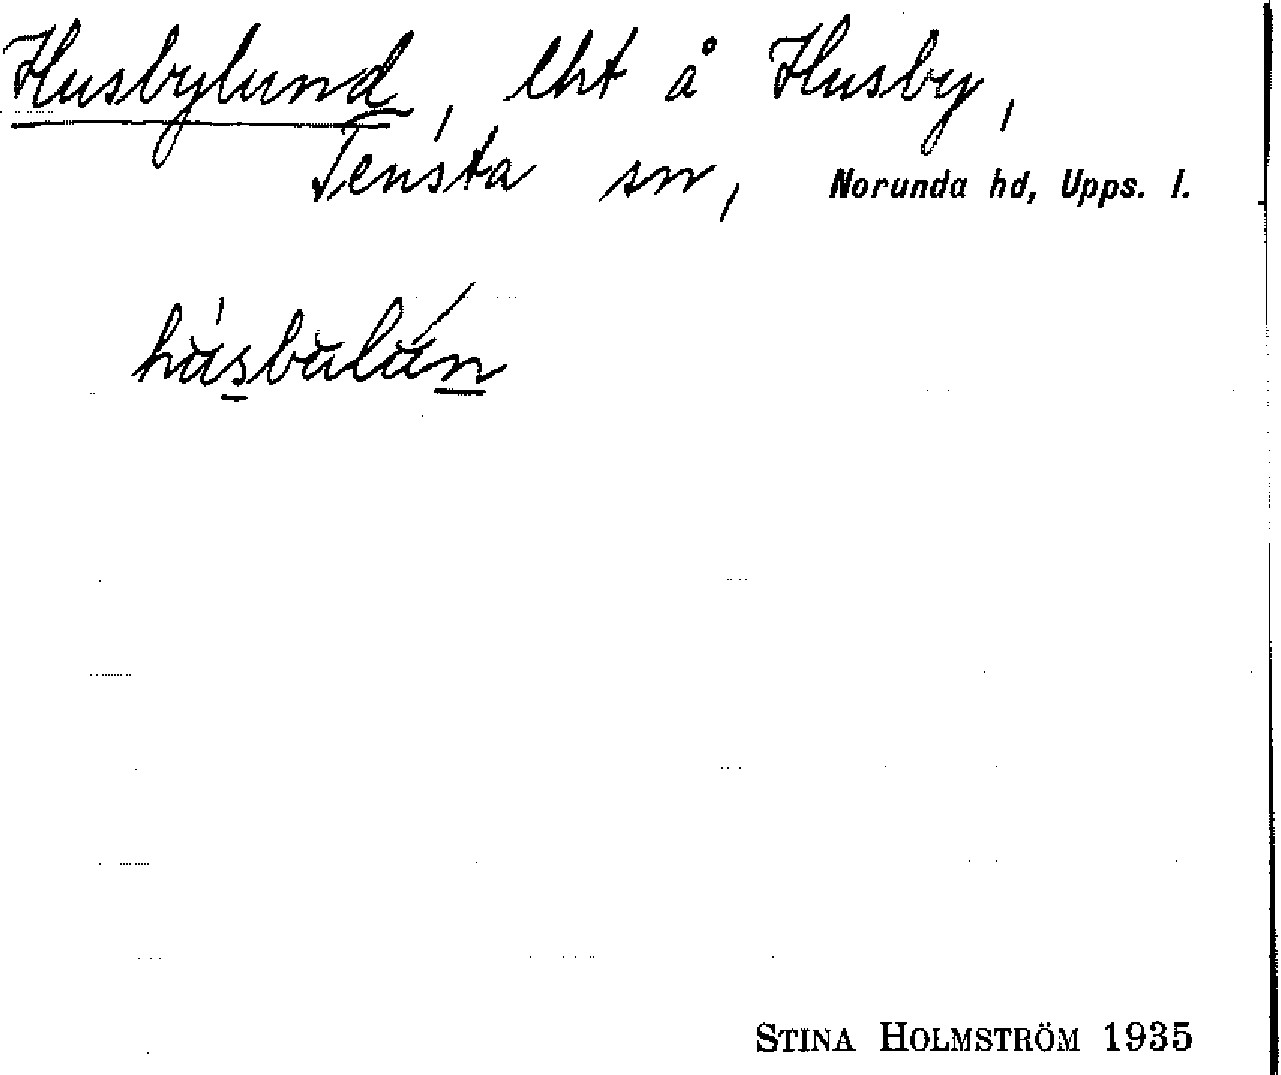 Husbylund, lht å Husby,
Tensta sn, Norunda hd, Upps. l.
husbulun
STINA HOLMSTRÖM 1935